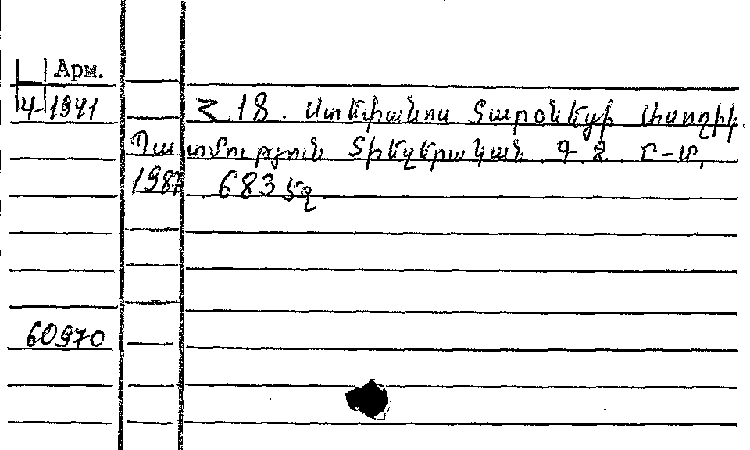 Арм.
4-1971 Հ 18. Ստեփանոս Տարօնեցի Ասողիկ.
Պատմություն Տիեզերական
1987 683 էջ
60970